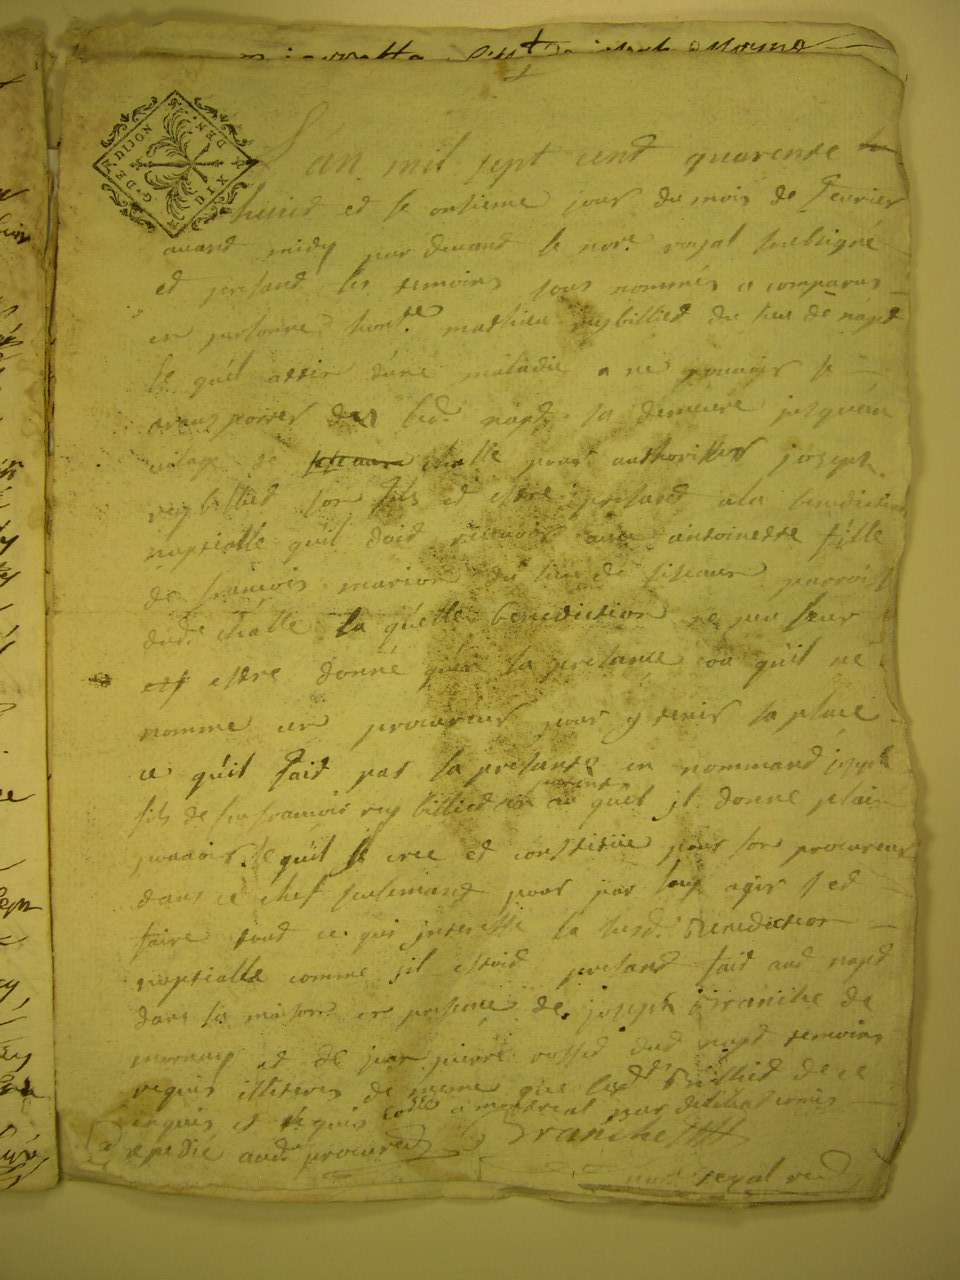 G^D DE DIJON
DIX DEN.
L'an mil sept cent quarente
huiid et le onsieme jour du mois de Fevrier
avand midy par devand le nore. royal soubsigné
et presand les temoins sous nommés a comparus
en personne hontle mathieu reybillied du lieu de napt
le quil attin d'une maladie a ne pouvoir se
transporter de napt sa demeure jusqu'au
vilage de challe pour authoriser joseph
reybillied son fils et estre presand a la benediction
nuptialle quil doid recevoir avec antoinette fille
de francois marion du lieu de siseaux parroisse
dud. challe la quelle benediction ne peu leur
estre donné qu'en sa presance ou qu'il ne
nomme un procureur pour y tenir sa place
ce quil faid par la presante en nommand joseph
fils de fu francois reybillied au quel jl donne plain
pouvoir le quil cree et constitüe pour son procureur
dans ce chef seulemand pour par luy agir et
faire toud ce qui jnteresse la susd. Benediction
nuptialle comme sil estoid presand faid aud napt
dans sa maison en presence de joseph Franche de
et de jean pierre rossed dud napt temoins
requis illiteres de mesme que les dts Billied de ce
enquis et requis a montreal par
expedié aud. procureur Franche
nore. royal